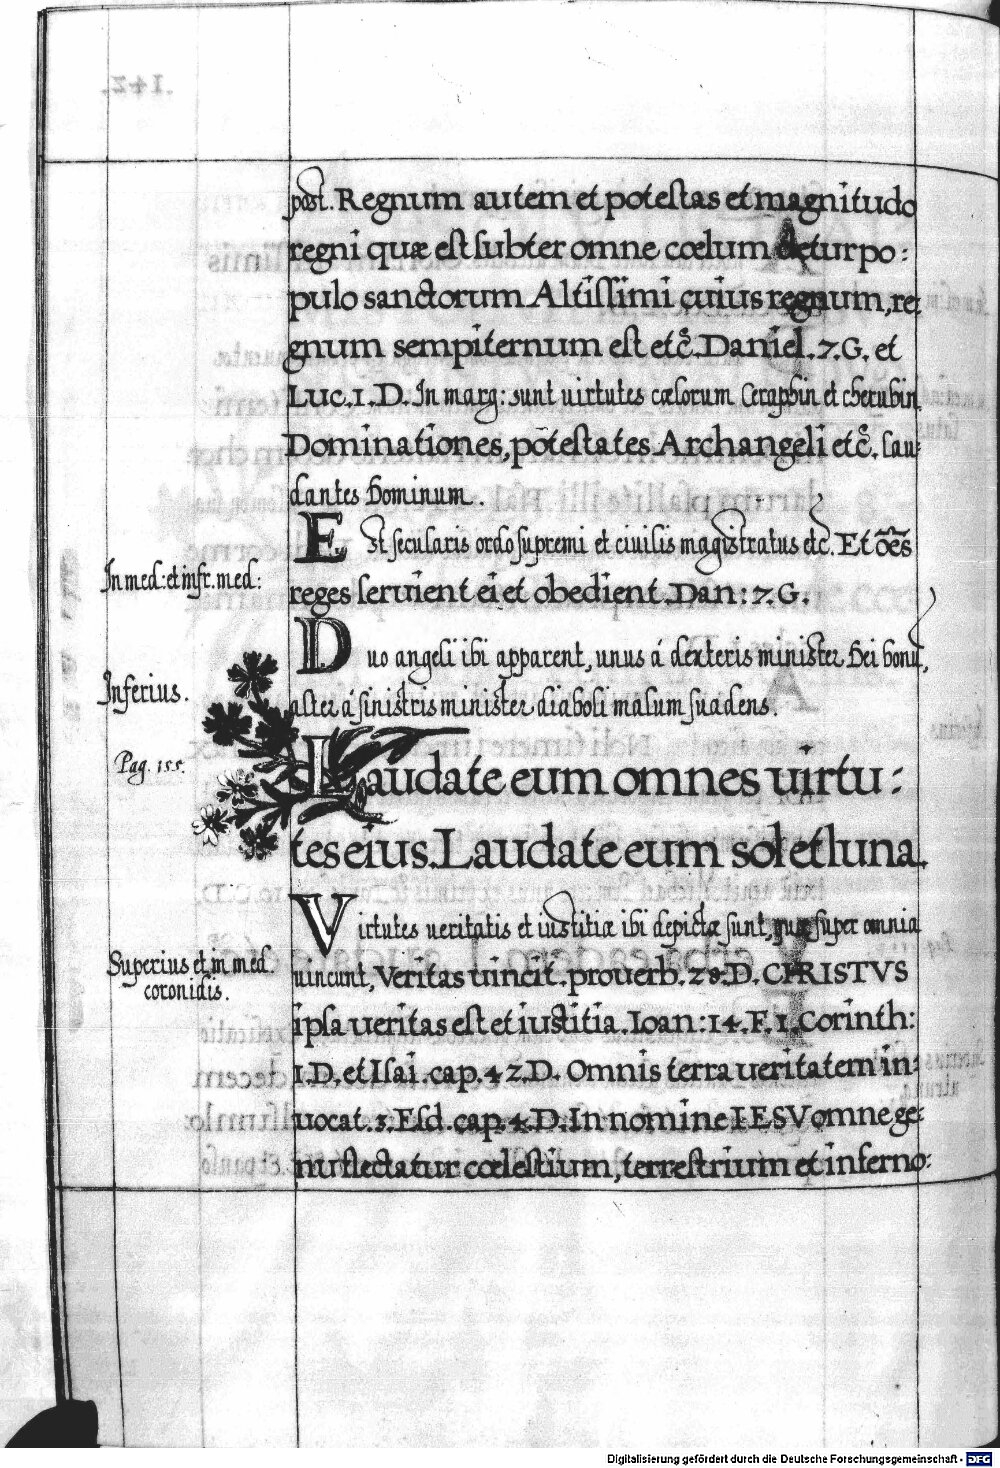 post. Regnum autem et potestas et magnitudo
regni quæ est subter omne cœlum detur po:
pulo sanctorum Altissimi, cuius regnum, re:
gnum sempiternum est etc̃. Daniel. 7. G. et
Luc. 1. D. In marg: sunt uirtutes cœlorum Seraphin et cherubin,
Dominationes, põtestates Archangeli etc̃. lau:
dantes Dominum.
Est secularis ordo supremi et ciuilis magistratus etc. Et oẽs
In med: et infr. med:
reges seruient ei et obedient. Dan: 7. G.
Duo angeli ibi apparent, unus á dexteris minister Dei bonus,
Inferius.
alter á sinistris minister diaboli malum suadens.
Pag. 155.
Laudate eum omnes uirtu:
tes eius. Laudate eum sol et luna.
Virtutes ueritatis et iustitiæ ibi depictæ sunt, quæ super omnia
Superius et in med.
coronidis.
uincunt, Veritas uincit. prouerb. 28. D. CHRISTVS
ipsa ueritas est et iustitia. Ioan: 14. F. 1. Corinth:
1. D. et Isai. cap. 42. D. Omnis terra ueritatem in:
uocat. 3. Esd. cap. 4. D. In nomine IESV omne ge:
nu flectatur cœlestium, terrestrium et inferno:
Digitalisierung gefördert durch die Deutsche Forschungsgemeinschaft - DFG